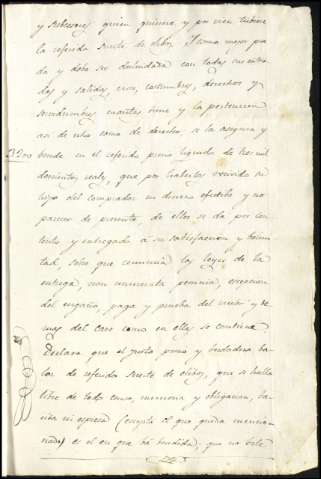 y subcesores quien quisiere y por vien tubiere
la referida Suerte de olibos, y como mejor pue
da y deba ser deslindada con todas sus entra
das y salidas, usos, costumbres, derechos y
serbidumbres cuantas tiene y la pertenecen
asi de echo como de derecho, se la asegura y
bende en el referido precio liquido de tres mil
3200
doscientos reales, que por haberlos recivido en
del comprador en dinero efectibo y no
parecer de presente, de ellos se da por con
tento y entregado a su satisfaccion y bolun
tad, sobre que renuncia las leyes de la
entrega, non numerata pecunia, excepcion
del engaño, paga y prueba del recivo y de
mas del caso como en ellas se contiene
Declara que el justo precio y berdadero ba
lor de referida Suerte de olibos, que se halla
libre de todo censo, memoria y obligacion, ta
cita ni espresa (excepto el que queda mencio
nado) es el en que ba bendida; que no bale